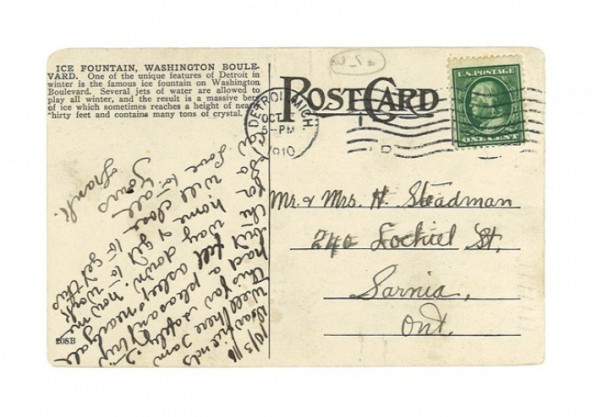 ICE FOUNTAIN, WASHINGTON BOULE-
VARD. One of the unique features of Detroit in
winter is the famous ice fountain on Washington
Boulevard. Several jets of water are allowed to
play all winter, and the result is a massive
of ice which sometimes reaches a height of nearly
thirty feet and contains many tons of crystal.
POST CARD
DETROIT, MICH.
OCT
5-PM
1910
U.S. POSTAGE
ONE CENT
Mr. & Mrs. H. Steadman
240 Lochiel St.
Sarnia,
Ont.
Dear friends
Well here I am
this far safely
had a pleasant trip
but fell asleep nearly all
the way down
home & get to work
will close
Love to all
Yours
Frank.
208B